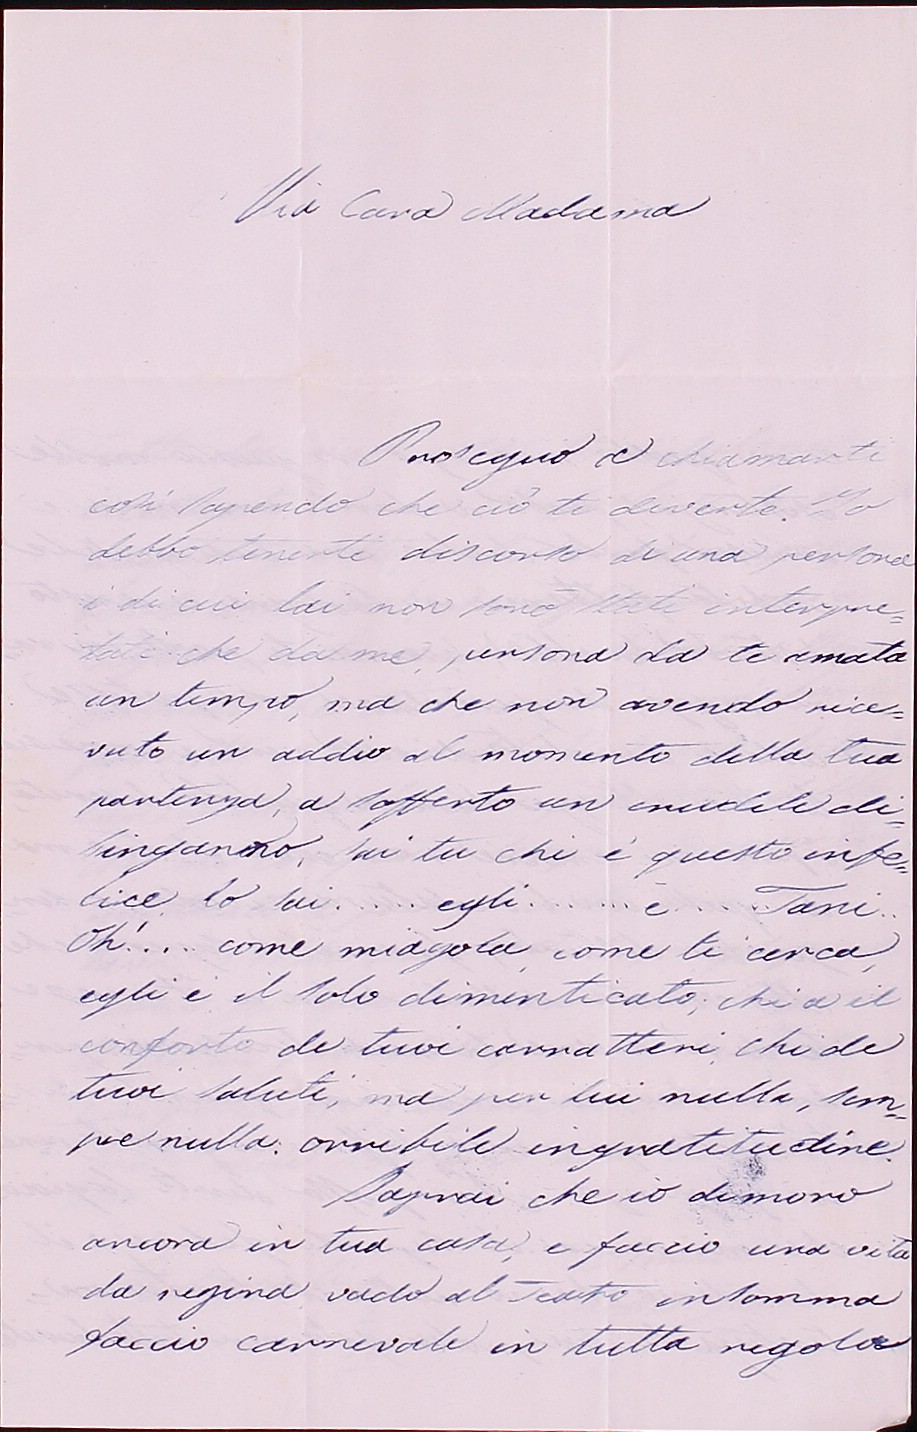 Mia Cara Madama
Proseguo a chiamarti
così sapendo che ciò ti diverte. Io
debbo tenerti discorso di una persona
i di cui lai non sono stati interpre=
tati che da me, persona da te amata
un tempo, ma che non avendo rice=
vuto un addio al momento della tua
partenza, a sofferto un crudele di=
singanno, sai tu chi è questo infe=
lice lo sai..... egli....... è.... Tani..
Oh!.... come miagola, come ti cerca,
egli è il solo dimenticato; chi a il
conforto de tuoi carratteri, chi de
tuoi saluti, ma per lui nulla, sem=
pre nulla: orribile ingratitudine.
Saprai che io dimoro
ancora in tua casa, e faccio una vita
da regina vado al Teatro insomma
faccio carnevale in tutta regola